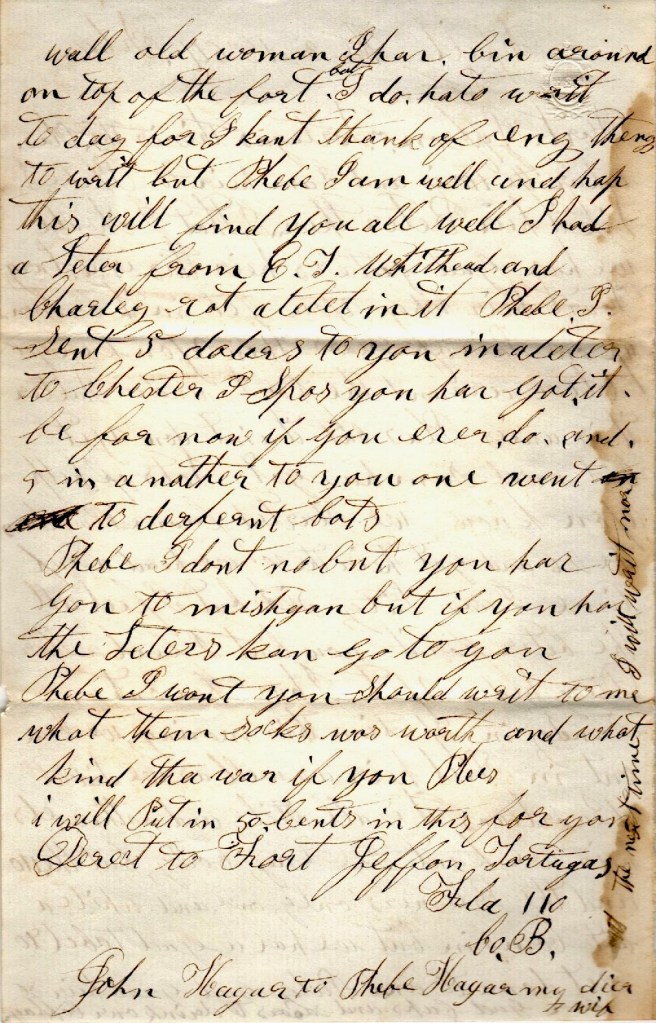 wall old woman I har. bin around
on top of the fort. but I do. hato writ
to day for I kant thank of eng theng
to writ but Phebe I am well and hap
this will find you all well I had
a Leter from C. T. Whithead and
Charley rot a letet in it Phebe. I.
Sent 5 dolers to you in a leter
to Chester I Spos you har got. it.
be for now if you erer. do. and.
5 in a nather to you one went
to derfernt bots
Phebe I dont no but you har
gon to mishgan but if you har
the Leters kan go to you
Phebe I wont you should writ to me
what them socks was worth and what
kind tha war if you Plees
i will Put in 50. Cents in this for you
Derect to Fort Jeffon Tortugas.
Fla 110
Co. B.
John Hagar to Phebe Hagar my dier
wif
I will writ mor the next time